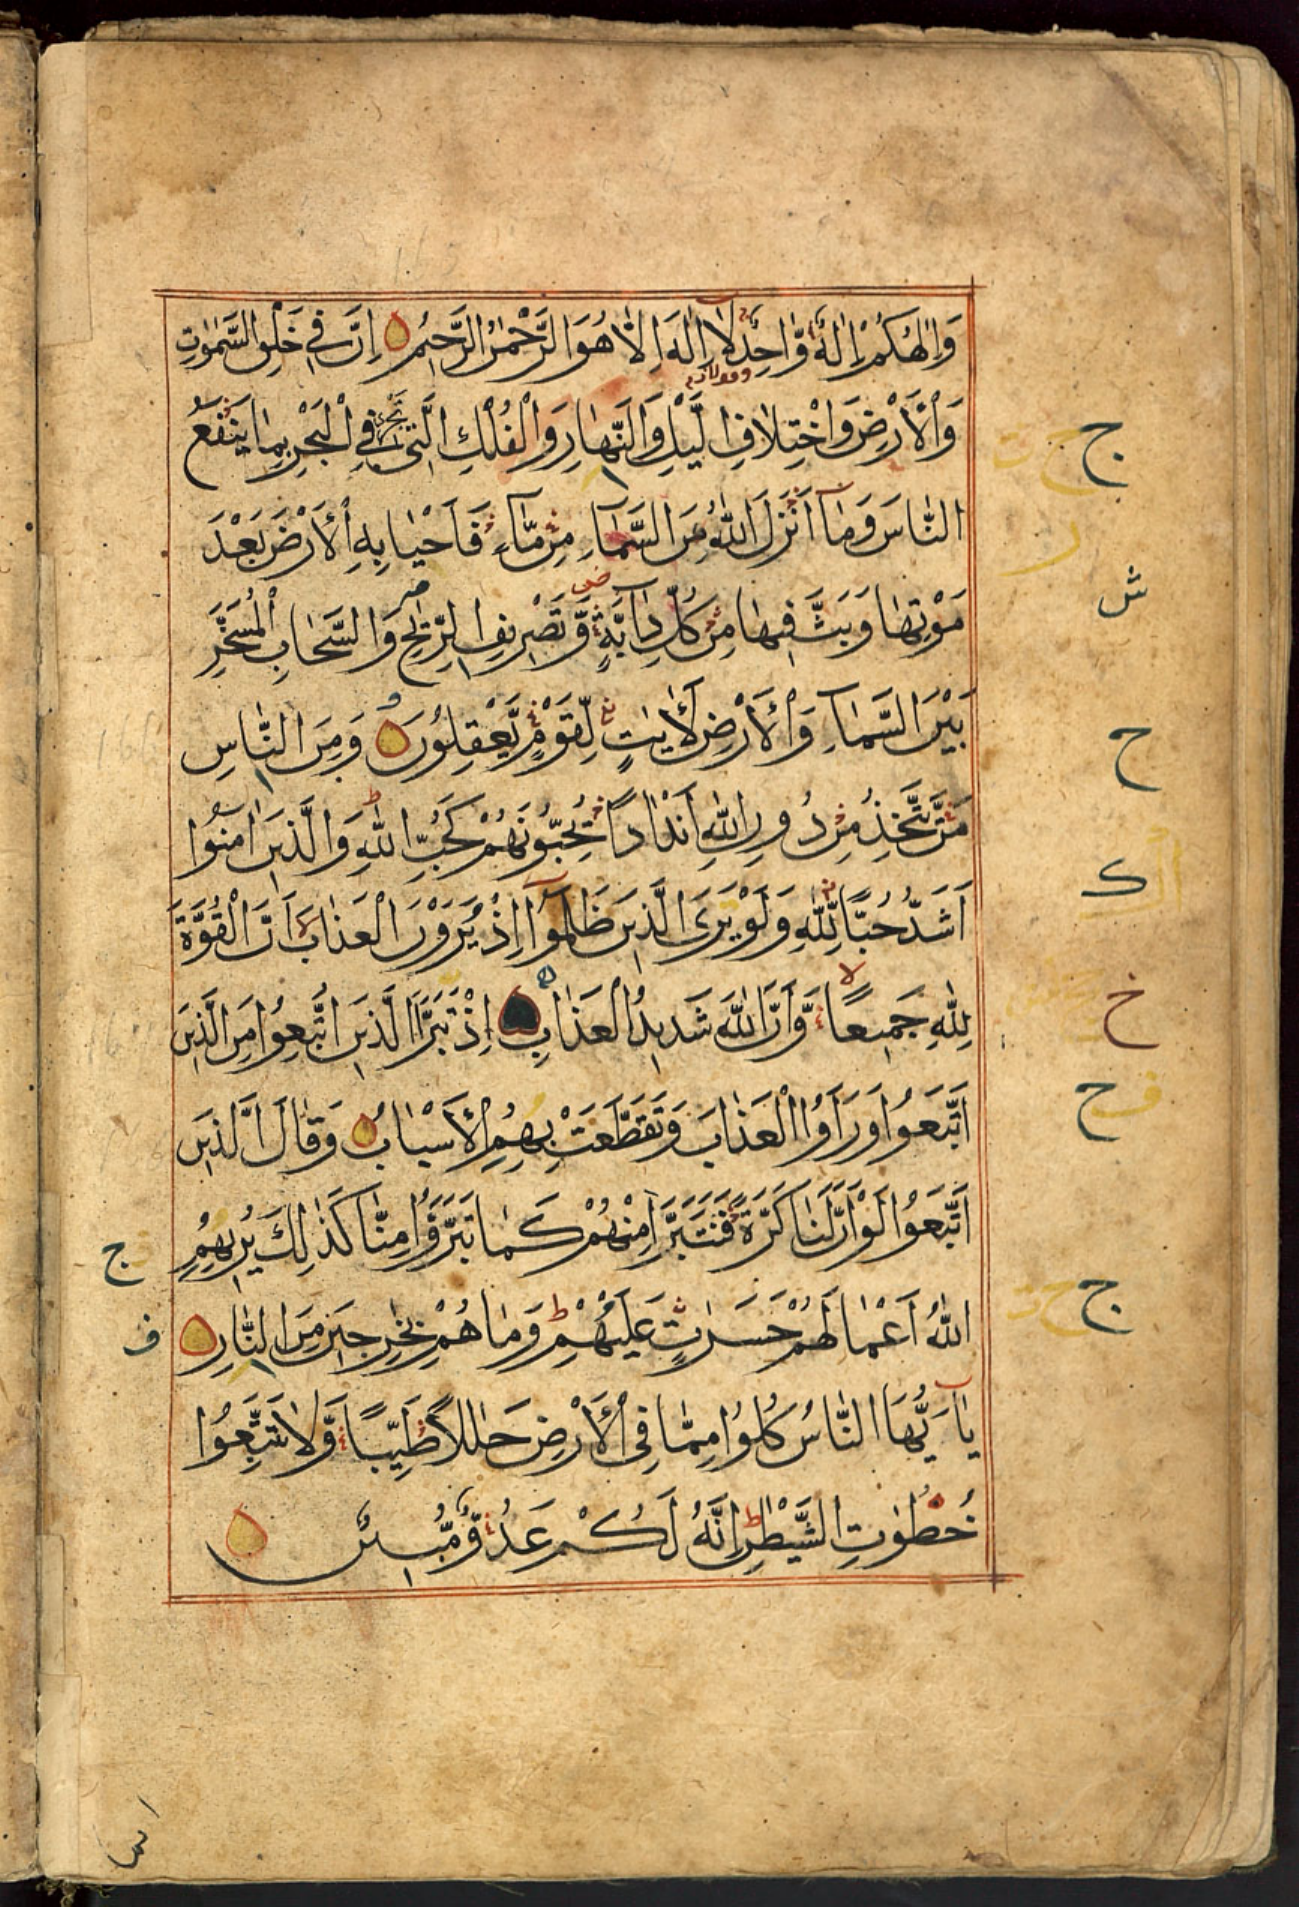 وَاِلٰهُكُمْ اِلٰهٌ وَّاحِدٌ لَآ اِلٰهَ اِلَّا هُوَ الرَّحْمٰنُ الرَّحِيْمُ اِنَّ فِيْ خَلْقِ السَّمٰوٰتِ
وَالْاَرْضِ وَاخْتِلَافِ الَّيْلِ وَالنَّهَارِ وَالْفُلْكِ الَّتِيْ تَجْرِيْ فِي الْبَحْرِ بِمَا يَنْفَعُ
النَّاسَ وَمَآ اَنْزَلَ اللّٰهُ مِنَ السَّمَآءِ مِنْ مَّآءٍ فَاَحْيَا بِهِ الْاَرْضَ بَعْدَ
مَوْتِهَا وَبَثَّ فِيْهَا مِنْ كُلِّ دَآبَّةٍ وَّتَصْرِيْفِ الرِّيٰحِ وَالسَّحَابِ الْمُسَخَّرِ
بَيْنَ السَّمَآءِ وَالْاَرْضِ لَاٰيٰتٍ لِّقَوْمٍ يَّعْقِلُوْنَ وَمِنَ النَّاسِ
مَنْ يَّتَّخِذُ مِنْ دُوْنِ اللّٰهِ اَنْدَادًا يُّحِبُّوْنَهُمْ كَحُبِّ اللّٰهِ وَالَّذِيْنَ اٰمَنُوْٓا
اَشَدُّ حُبًّا لِّلّٰهِ وَلَوْ يَرَى الَّذِيْنَ ظَلَمُوْٓا اِذْ يَرَوْنَ الْعَذَابَ اَنَّ الْقُوَّةَ
لِلّٰهِ جَمِيْعًا وَّاَنَّ اللّٰهَ شَدِيْدُ الْعَذَابِ اِذْ تَبَرَّاَ الَّذِيْنَ اتُّبِعُوْا مِنَ الَّذِيْنَ
اتَّبَعُوْا وَرَاَوُا الْعَذَابَ وَتَقَطَّعَتْ بِهِمُ الْاَسْبَابُ وَقَالَ الَّذِيْنَ
اتَّبَعُوْا لَوْ اَنَّ لَنَا كَرَّةً فَنَتَبَرَّاَ مِنْهُمْ كَمَا تَبَرَّءُوْا مِنَّا كَذٰلِكَ يُرِيْهِمُ
اللّٰهُ اَعْمَالَهُمْ حَسَرٰتٍ عَلَيْهِمْ وَمَا هُمْ بِخٰرِجِيْنَ مِنَ النَّارِ
يٰٓاَيُّهَا النَّاسُ كُلُوْا مِمَّا فِي الْاَرْضِ حَلٰلًا طَيِّبًا وَّلَا تَتَّبِعُوْا
خُطُوٰتِ الشَّيْطٰنِ اِنَّهٗ لَكُمْ عَدُوٌّ مُّبِيْنٌ
ج
ش
ح
ك
خ
ح
ج
ج
ف